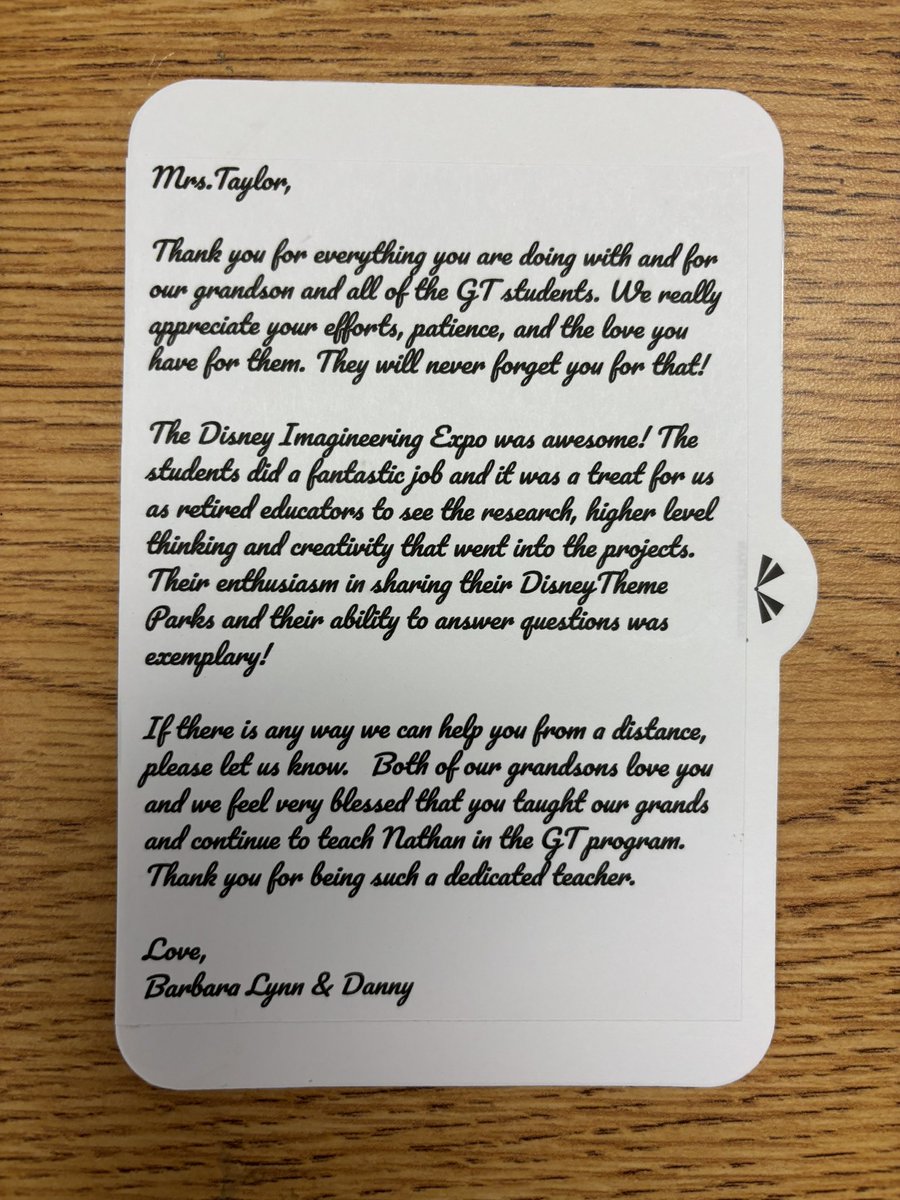 Mrs.Taylor,
Thank you for everything you are doing with and for
our grandson and all of the GT students. We really
appreciate your efforts, patience, and the love you
have for them. They will never forget you for that!
The Disney Imagineering Expo was awesome! The
students did a fantastic job and it was a treat for us
as retired educators to see the research, higher level
thinking and creativity that went into the projects.
Their enthusiasm in sharing their DisneyTheme
Parks and their ability to answer questions was
exemplary!
If there is any way we can help you from a distance,
please let us know.   Both of our grandsons love you
and we feel very blessed that you taught our grands
and continue to teach Nathan in the GT program.
Thank you for being such a dedicated teacher.
Love,
Barbara Lynn & Danny